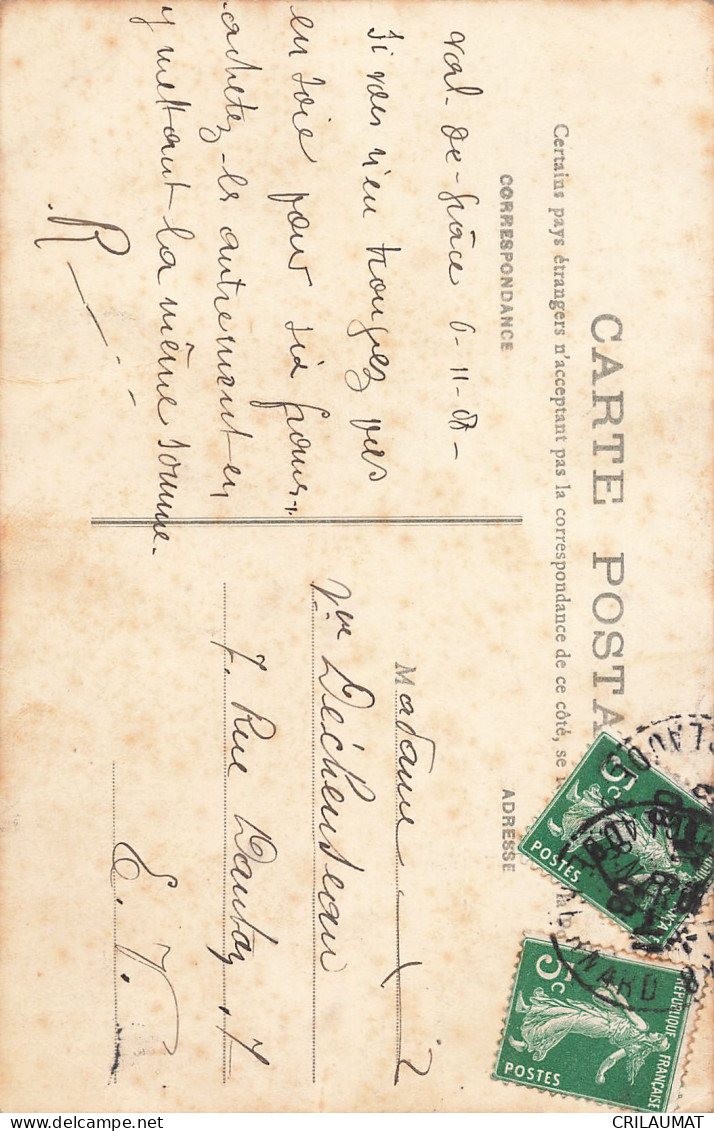 CARTE POSTA
Certains pays étrangers n'acceptent pas la correspondance de ce côté, se
CORRESPONDANCE
Val-de-Grâce 6-11-08-
Si vous n'en trouvez pas
en soie pour six francs,
achetez-les autrement en
y mettant la même somme.
R
ADRESSE
Madame
Vve Déchenseau
7. Rue Dautan, 7
E. V.
5c
POSTES
5c
POSTES
RÉPUBLIQUE FRANÇAISE
CRILAUMAT